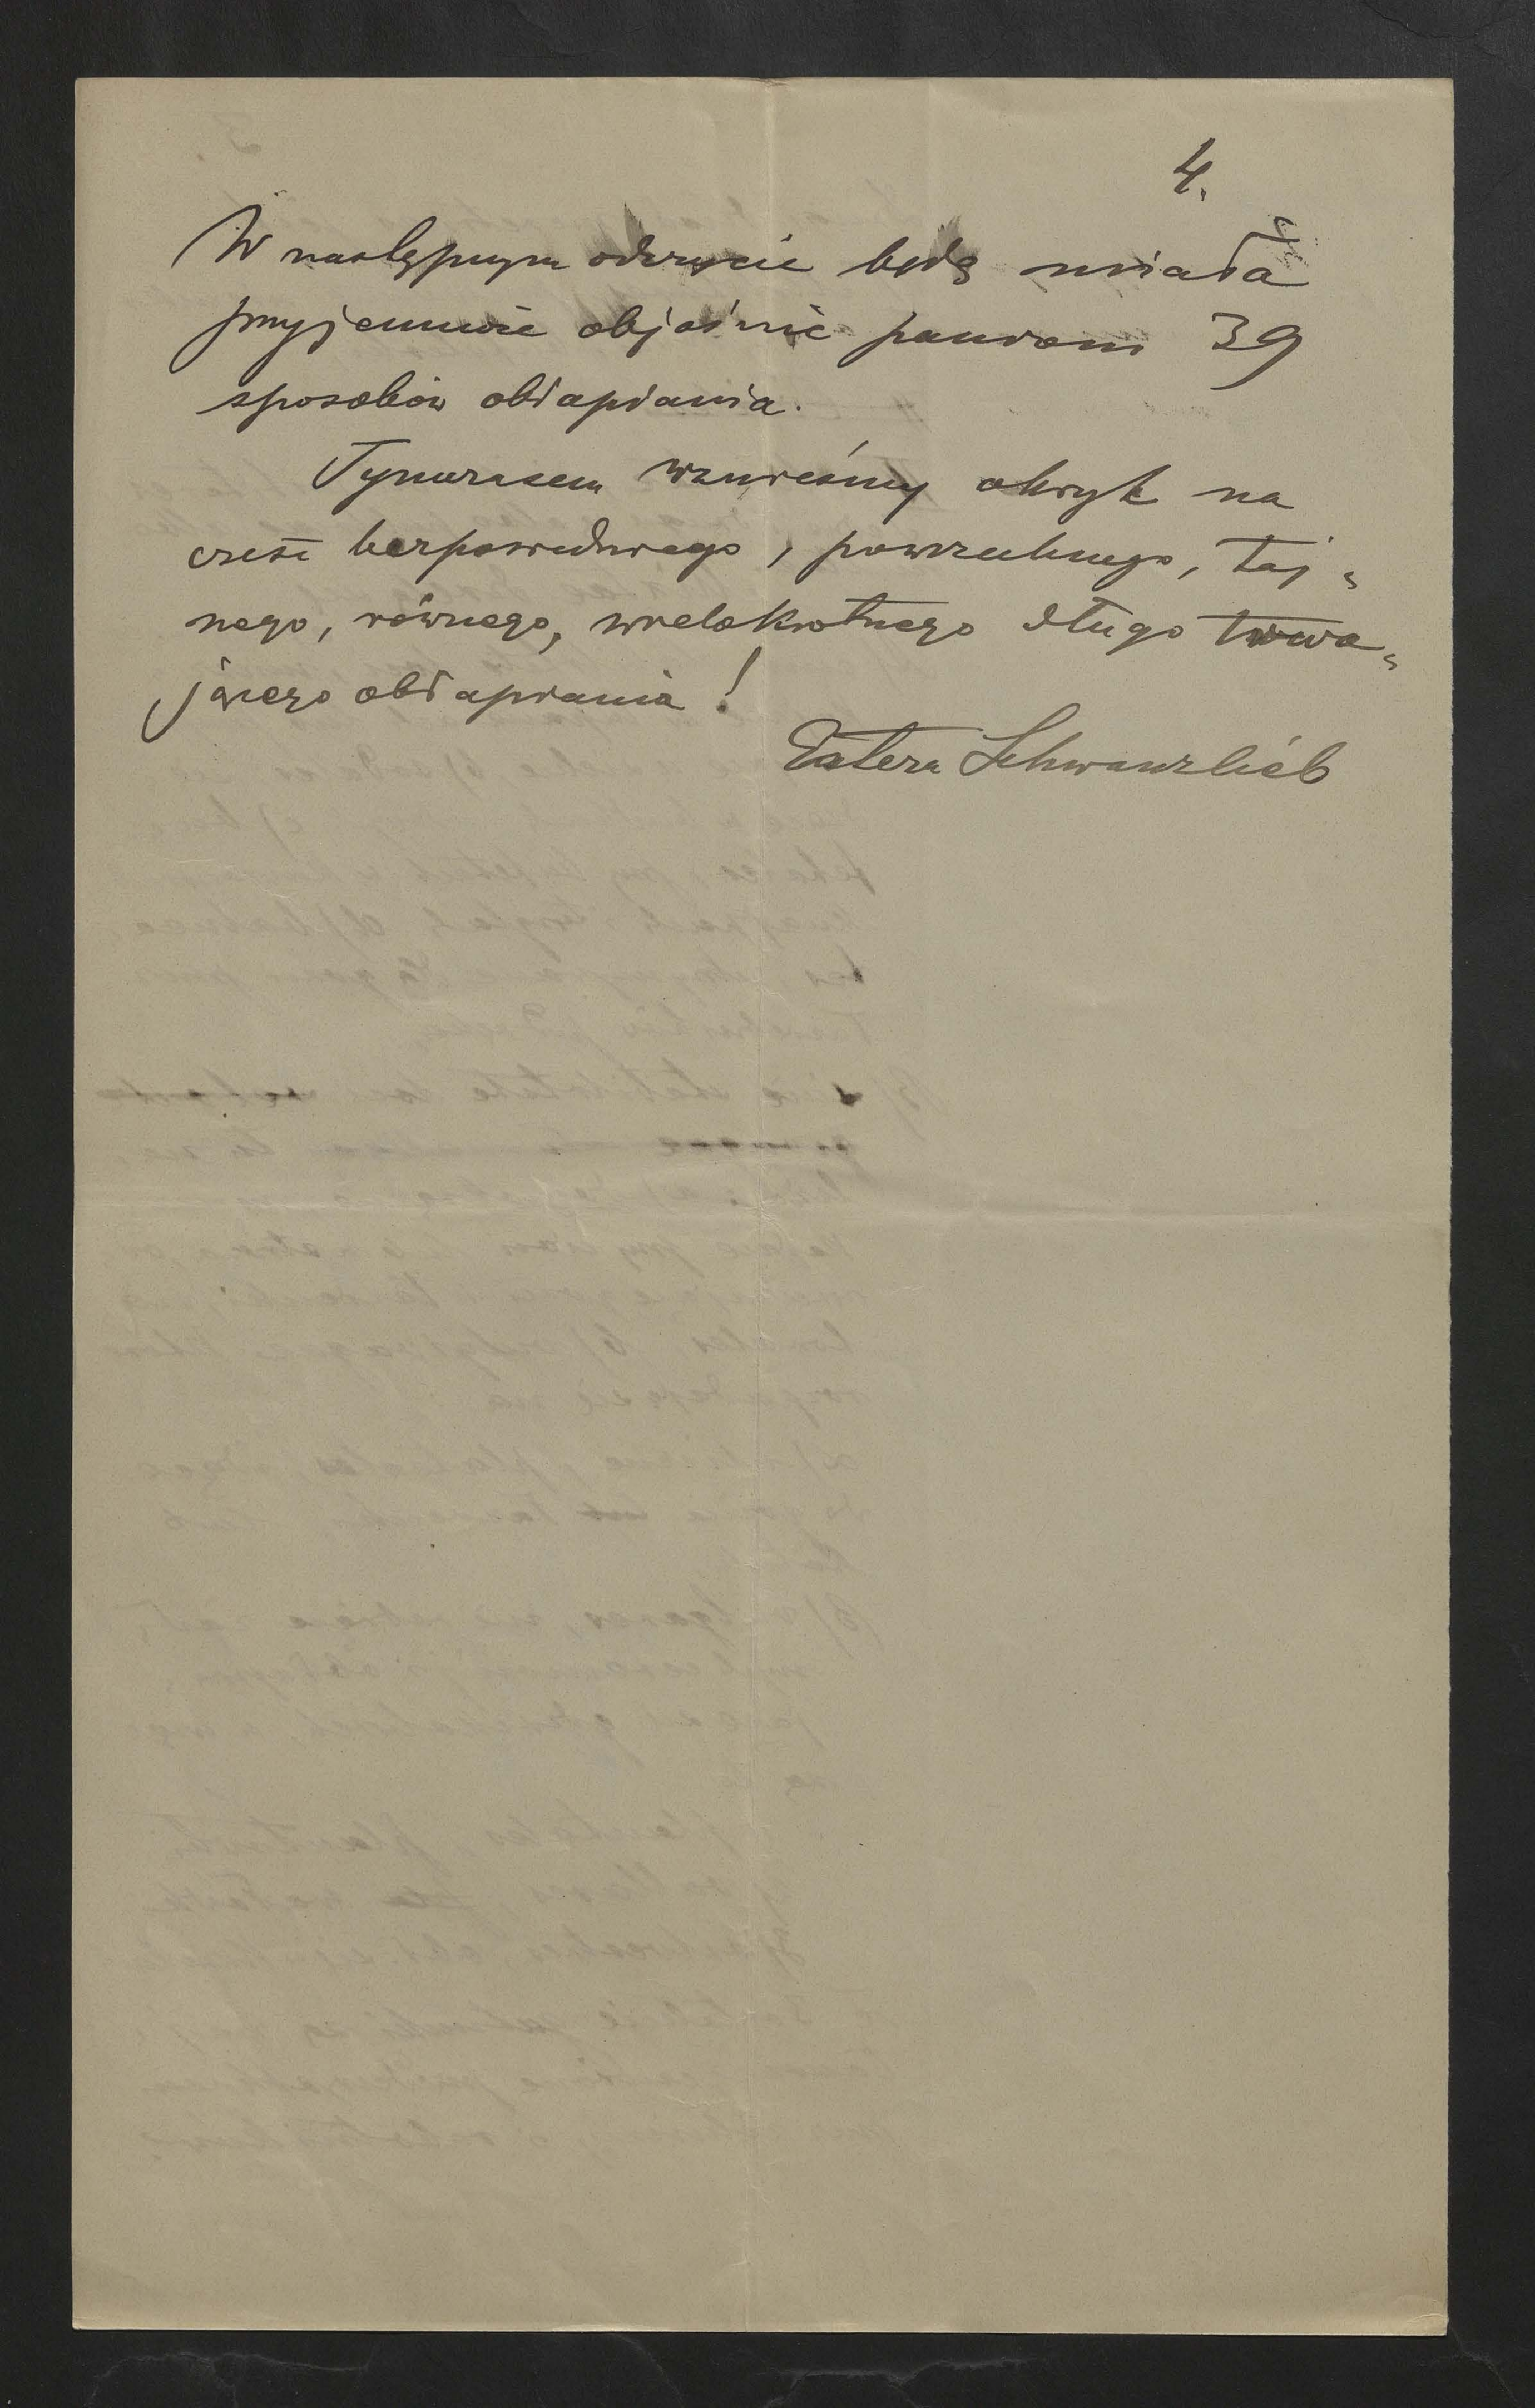 4.
W następnym odczycie będę miała
przyjemność objaśnić panom 39
sposobów obłapiania.
Tymczasem wznieśmy okrzyk na
cześć bezpośredniego, powszechnego, taj-
nego, równego, wielokrotnego długo trwa-
jącego obłapiania!
Schwanzlieb